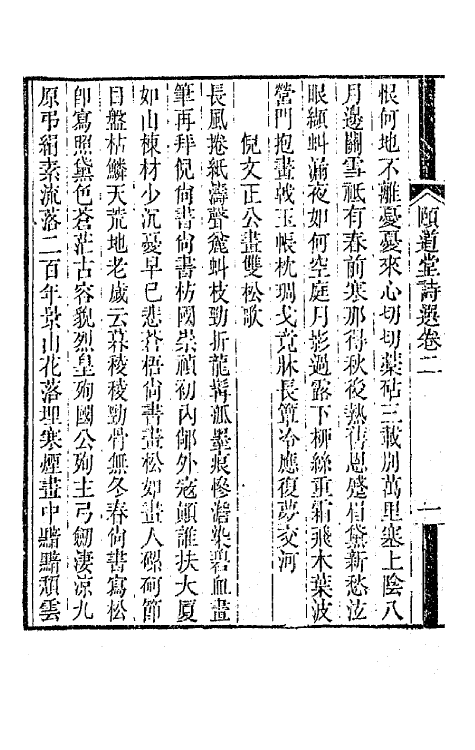 頤道堂詩選卷二
一
恨何地不離憂憂來心切切藥砧三載別萬里塞上陰八
月邊關雪祗有春前寒那得秋後熱舊恩殘眉黛新愁泣
眼纈蚪漏夜如何空庭月影過露下柳絲重霜飛木葉波
營門抱畫戟玉帳枕琱戈竟牀長簟冷應復夢交河
倪文正公畫雙松歌
長風捲紙濤聲麄蚪枝勁折龍髯孤墨痕慘澹染碧血畫
筆再拜倪尙書尙書枋國崇禎初內郁外寇顚誰扶大廈
如山棟材少沉憂早已悲蒼梧尙書畫松如畫人磥砢節
目盤枯鱗天荒地老歲云暮稜稜勁骨無冬春尙書寫松
卽寫照黛色蒼茫古容貌烈皇殉國公殉主弓劒淒涼九
原弔絹素流落二百年景山花落埋寒煙畫中黯黯頹雲